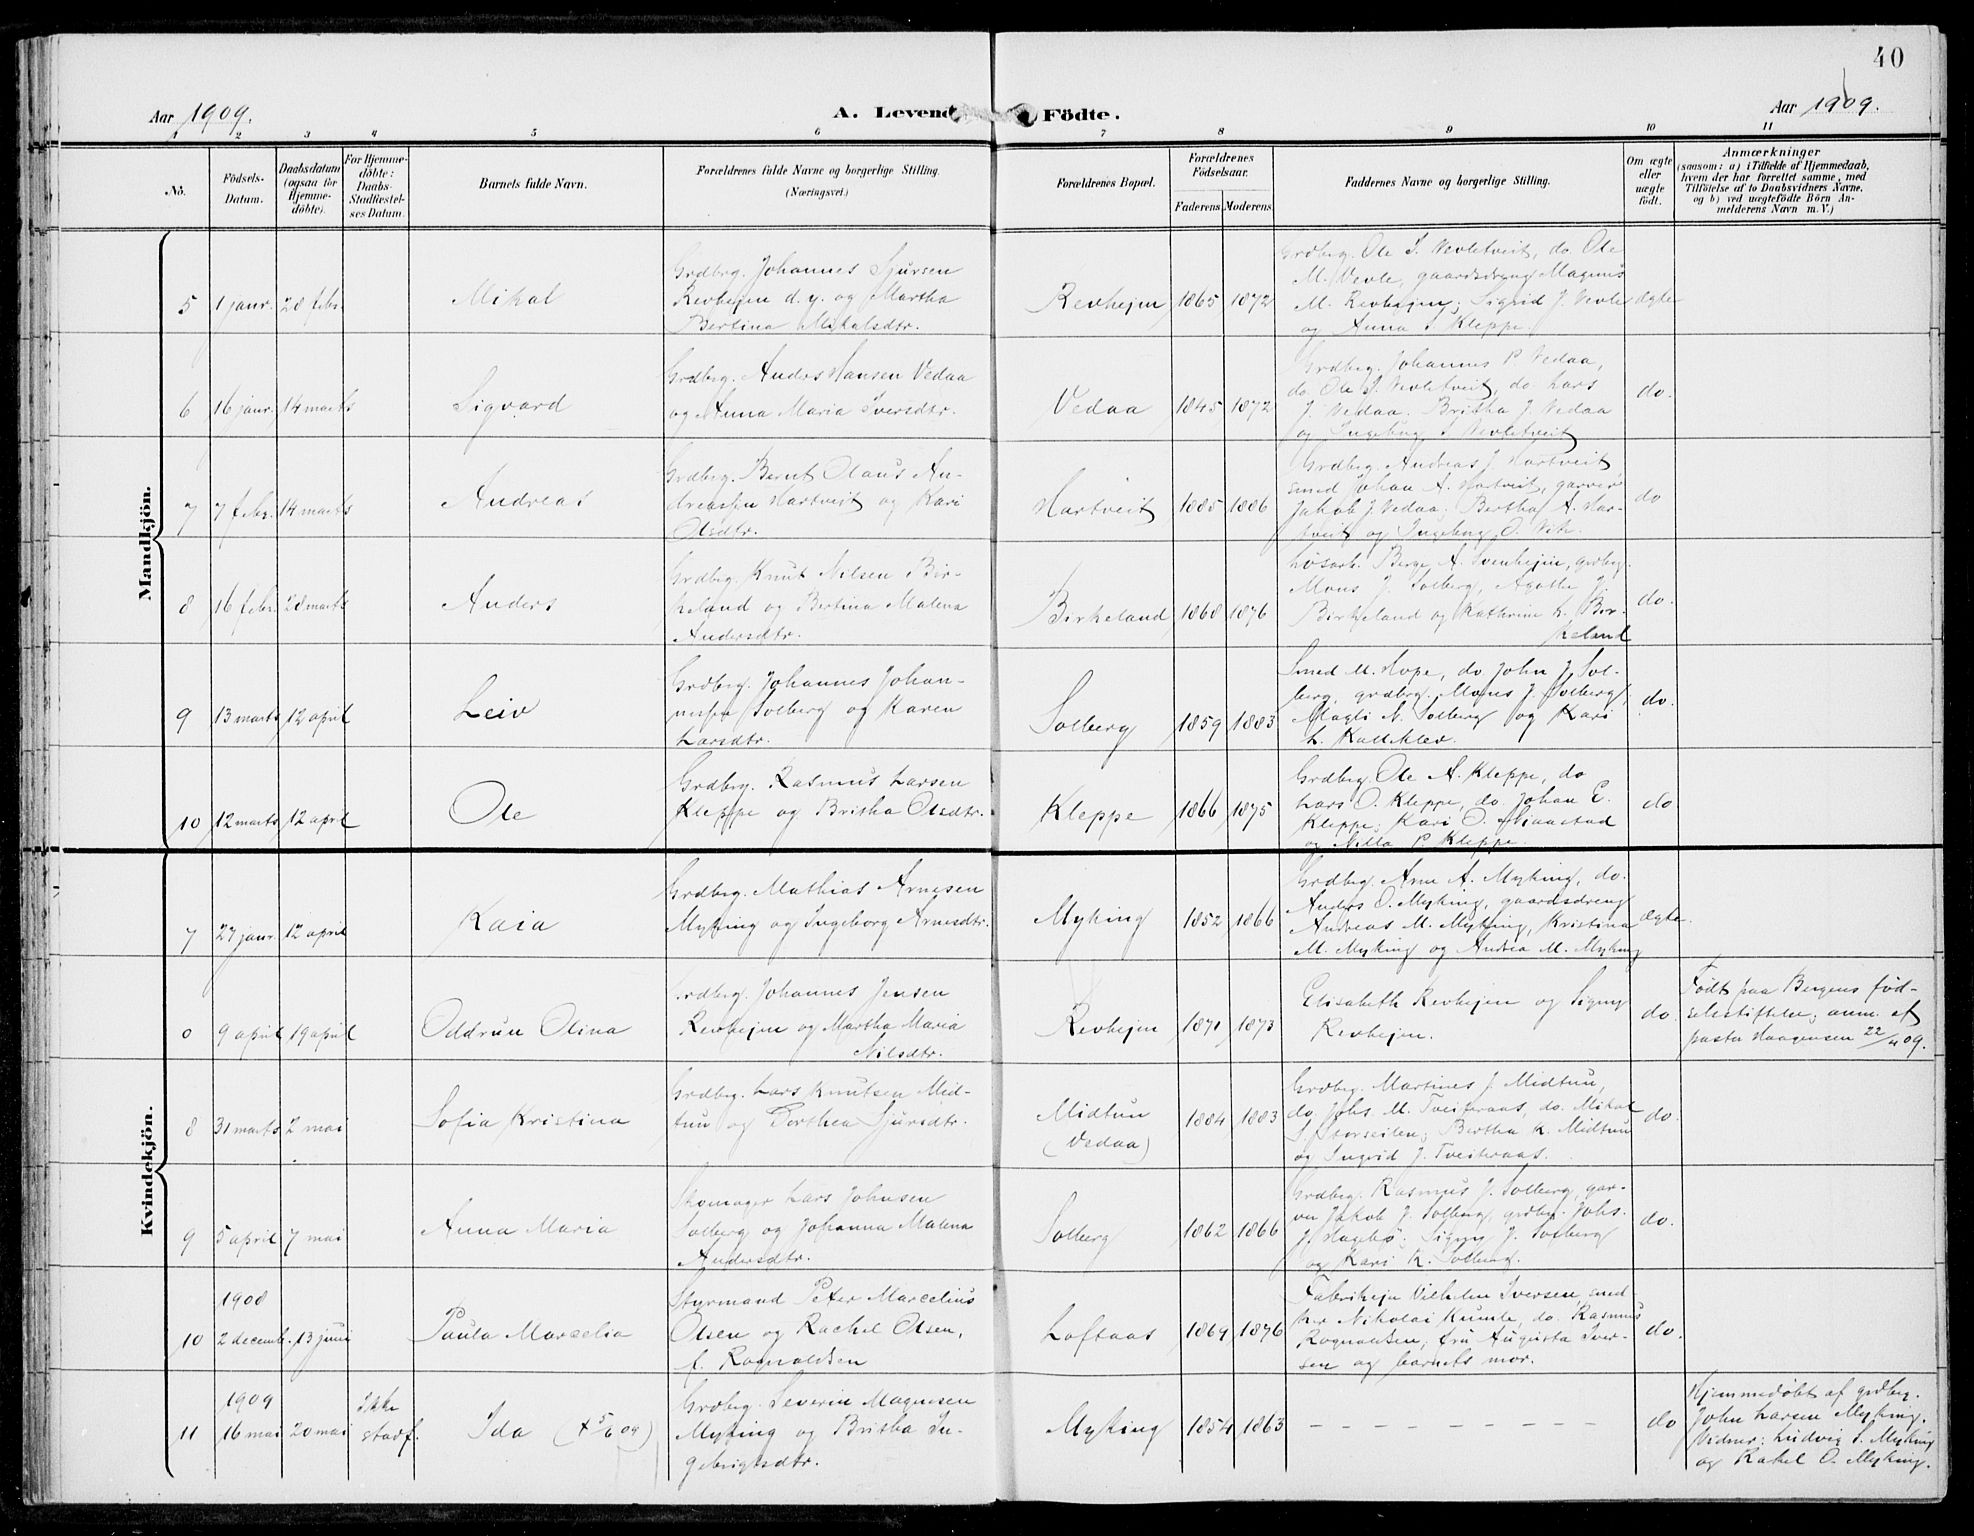 40
Aar 1909.
A. Levende Födte.
Aar 1909.
1 2 3 4 5 6 7 8 9 10 11
No.
Födsels-
Datum.
Daabsdatum
(ogsaa for
Hjemme-
döbte).
For Hjemme-
döbte:
Daabs-
Stadfæstel-
ses Datum.
Barnets fulde Navn.
Forældrenes fulde Navne og borgerlige Stilling.
(Næringsvei.)
Forældrenes Bopæl.
Forældrenes
Fødselsaar.
Faderens Moderens
Faddernes Navne og borgerlige Stilling.
Om ægte
eller
uægte
födt.
Anmærkninger
(saasom: a) i Tilfælde af Hjemmedaab,
hvem der har forrettet samme, med
Tilföielse af to Daabsvidners Navne.
og b) ved uægtefödte Börn An-
melderens Navn m. V.)
Mandkjön.
5 1 janr. 28 febr. Mikal
Grdbrg. Johannes Sjursen
Revhejm d. y. og Martha
Bertina Mikalsdtr.
Revhejm 1865 1872
Grdbrg. Ole S. Nevletveit, do. Ole
M. Vevle, gaardsdreng Magnus
M. Revhejm; Sigrid J. Vevle
og Anna S. Kleppe.
ægte
6 16 janr. 14 marts Sigvard
Grdbrg. Anders Hansen Vedaa
og Anna Maria Iversdtr.
Vedaa 1845 1872
Grdbrg. Johannes P. Vedaa,
do. Ole S. Nevletveit, do Lars
J. Vedaa. Britha J. Vedaa
og Ingebrg S. Nevletveit
do.
7 7 febr. 14 marts Andreas
Grdbrg. Bernt Olaus An-
dreassen Hartveit og Kari
Olsdtr.
Hartveit 1885 1886
Grdbrg. Andreas J. Hartveit,
smed Johan A. Hartveit, garver
Jakob J. Vedaa; Bertha A. Har-
tveit og Ingebrg O. Vik.
do
8 16 febr. 28 marts Anders
Grdbrg. Knut Nilsen Bir-
keland og Bertina Malena
Andersdtr.
Birkeland 1868 1876
Løsarb. Berge A. Svenhejm, grdbrg.
Mons J. Solberg, Agathe J.
Birkeland og Kathrine K. Bir-
keland
do.
9 13 marts 12 april Leiv
Grdbrg. Johannes Johan-
nessen Solberg og Karen
Larsdtr.
Solberg 1859 1883
Smed M. Hope, do John J. Sol-
berg, grdbrg. Mons J. Solberg,
Magli N. Solberg og Kari
L. Kalleklev.
do.
10 12 marts 12 april Ole
Grdbrg. Rasmus Larsen
Kleppe og Britha Olsdtr.
Kleppe 1866 1875
Grdbrg. Ole A. Kleppe, do
Lars O. Kleppe, do. Johan E.
Kleppe; Kari O. Miaastad
og Nilla P. Kleppe.
do
Kvindekjön.
7 27 janr. 12 april Kaia
Grdbrg. Mathias Arnesen
Myking og Ingeborg Arnesdtr.
Myking 1852 1866
Grdbrg. Arne A. Myking, do.
Anders O. Myking, gaardsdreng
Andreas M. Myking, Kristina
M. Myking og Andrea M. Myking
ægte.
0 9 april 19 april Oddrun Olina
Grdbrg. Johannes Jensen
Revhejm og Martha Maria
Nilsdtr.
Revhejm 1871 1873
Elisabeth Revhejm og Signy
Revhejm.
do.
Født paa Bergens fød-
selsstiftelse; anm. af
pastor Haagensen 22/4 09.
8 31 marts 2 mai Sofia Kristina
Grdbrg. Lars Knutsen Mid-
tun og Dorthea Sjursdtr.
Midtun
(Vedaa)
1884 1883
Grdbrg. Martines J. Midtun,
do. Johs. M. Tveiteraas, do. Mikal
S. Storseilen; Bertha K. Midtun
og Ingrid J. Tveiteraas.
do.
9 5 april 7 mai Anna Maria
Skomager Lars Johnsen
Solberg og Johanna Malena
Andersdtr.
Solberg 1862 1866
Grdbrg. Rasmus J. Solberg, gar-
ver Jakob J. Solberg, grdbrg. Johs.
J. Hagebø; Signy J. Solberg
og Kari K. Solberg.
do.
1908
10 2 decemb. 13 juni Paula Marcelia
Styrmand Peter Marcelius
Olsen og Rachel Olsen,
f. Rognaldsen
Loftaas 1869 1876
Fabrikejer Vilhelm Iversen, smed
Nikolai Kumle, do. Rasmus
Rognaldsen; fru Augusta Iver-
sen og barnets mor.
do.
1909
11 16 mai 20 mai Ikke
stadf.
Ida (+ 5/6 09)
Grdbrg. Severin Magnesen
Myking og Britha In-
gebrigtsdtr.
Myking 1854 1863
- - - - - - - - -
do
Hjemmedøbt af grdbrg.
John Larsen Myking.
Vidner: Ludvig S. Myking
og Rakel O. Myking.